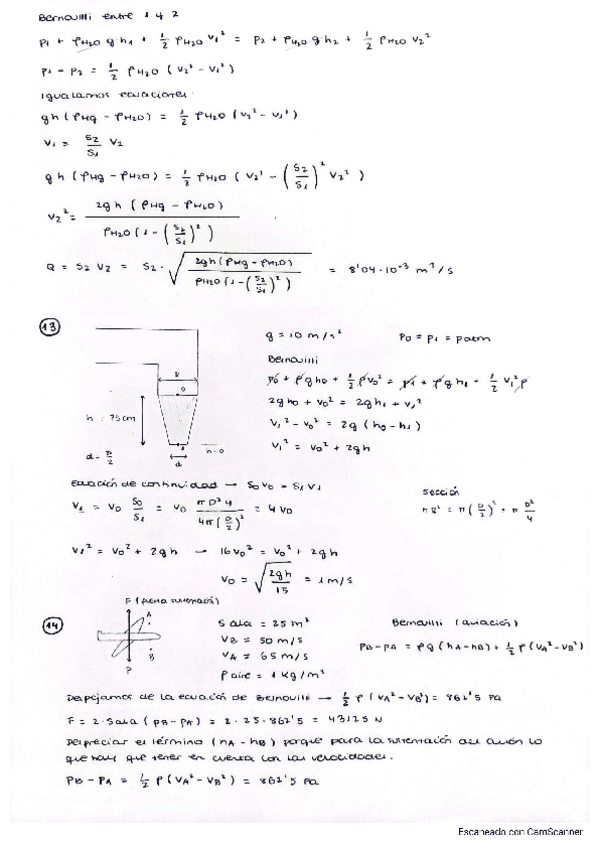 Bernouilli entre 1 y 2
P1 + ρH2O g h1 + 1/2 ρH2O v1² = P2 + ρH2O g h2 + 1/2 ρH2O v2²
P1 - P2 = 1/2 ρH2O (v2² - v1²)
Igualamos ecuaciones:
gh (ρHg - ρH2O) = 1/2 ρH2O (v2² - v1²)
v1 = S2/S1 v2
gh (ρHg - ρH2O) = 1/2 ρH2O (v2² - (S2/S1)² v2²)
v2² = 2gh (ρHg - ρH2O) / ρH2O (1 - (S2/S1)²)
Q = S2 v2 = S2 · √(2gh (ρHg - ρH2O) / ρH2O (1 - (S2/S1)²)) = 8'04·10⁻³ m³/s
13
g = 10 m/s² P0 = P1 = Patm
Bernouilli
P0 + ρgh0 + 1/2 ρv0² = P1 + ρgh1 - 1/2 v1²ρ
2gh0 + v0² = 2gh1 + v1²
v1² - v0² = 2g (h0 - h1)
v1² = v0² + 2gh
D
0
h = 75cm
d = D/2
1
h=0
d
Ecuación de continuidad → S0v0 = S1v1
v1 = v0 S0/S1 = v0 πD² 4 / 4π(D/2)² = 4v0
sección
πR² = π(D/2)² = π D²/4
v1² = v0² + 2gh → 16v0² = v0² + 2gh
v0 = √(2gh/15) = 1 m/s
14
F (fuerza sustentación)
A
B
P
S ala = 25 m²
vB = 50 m/s
vA = 65 m/s
ρ aire = 1 kg/m³
Bernouilli (aviación)
PB - PA = ρg (hA - hB) + 1/2 ρ(vA² - vB²)
Despejamos de la ecuación de Bernouilli → 1/2 ρ (vA² - vB²) = 862'5 Pa
F = 2·Sala (PB - PA) = 2·25·862'5 = 43125 N
Despreciar el término (hA - hB) porque para la sustentación del avión lo
que hay que tener en cuenta son las velocidades.
PB - PA = 1/2 ρ (vA² - vB²) = 862'5 Pa
Escaneado con CamScanner